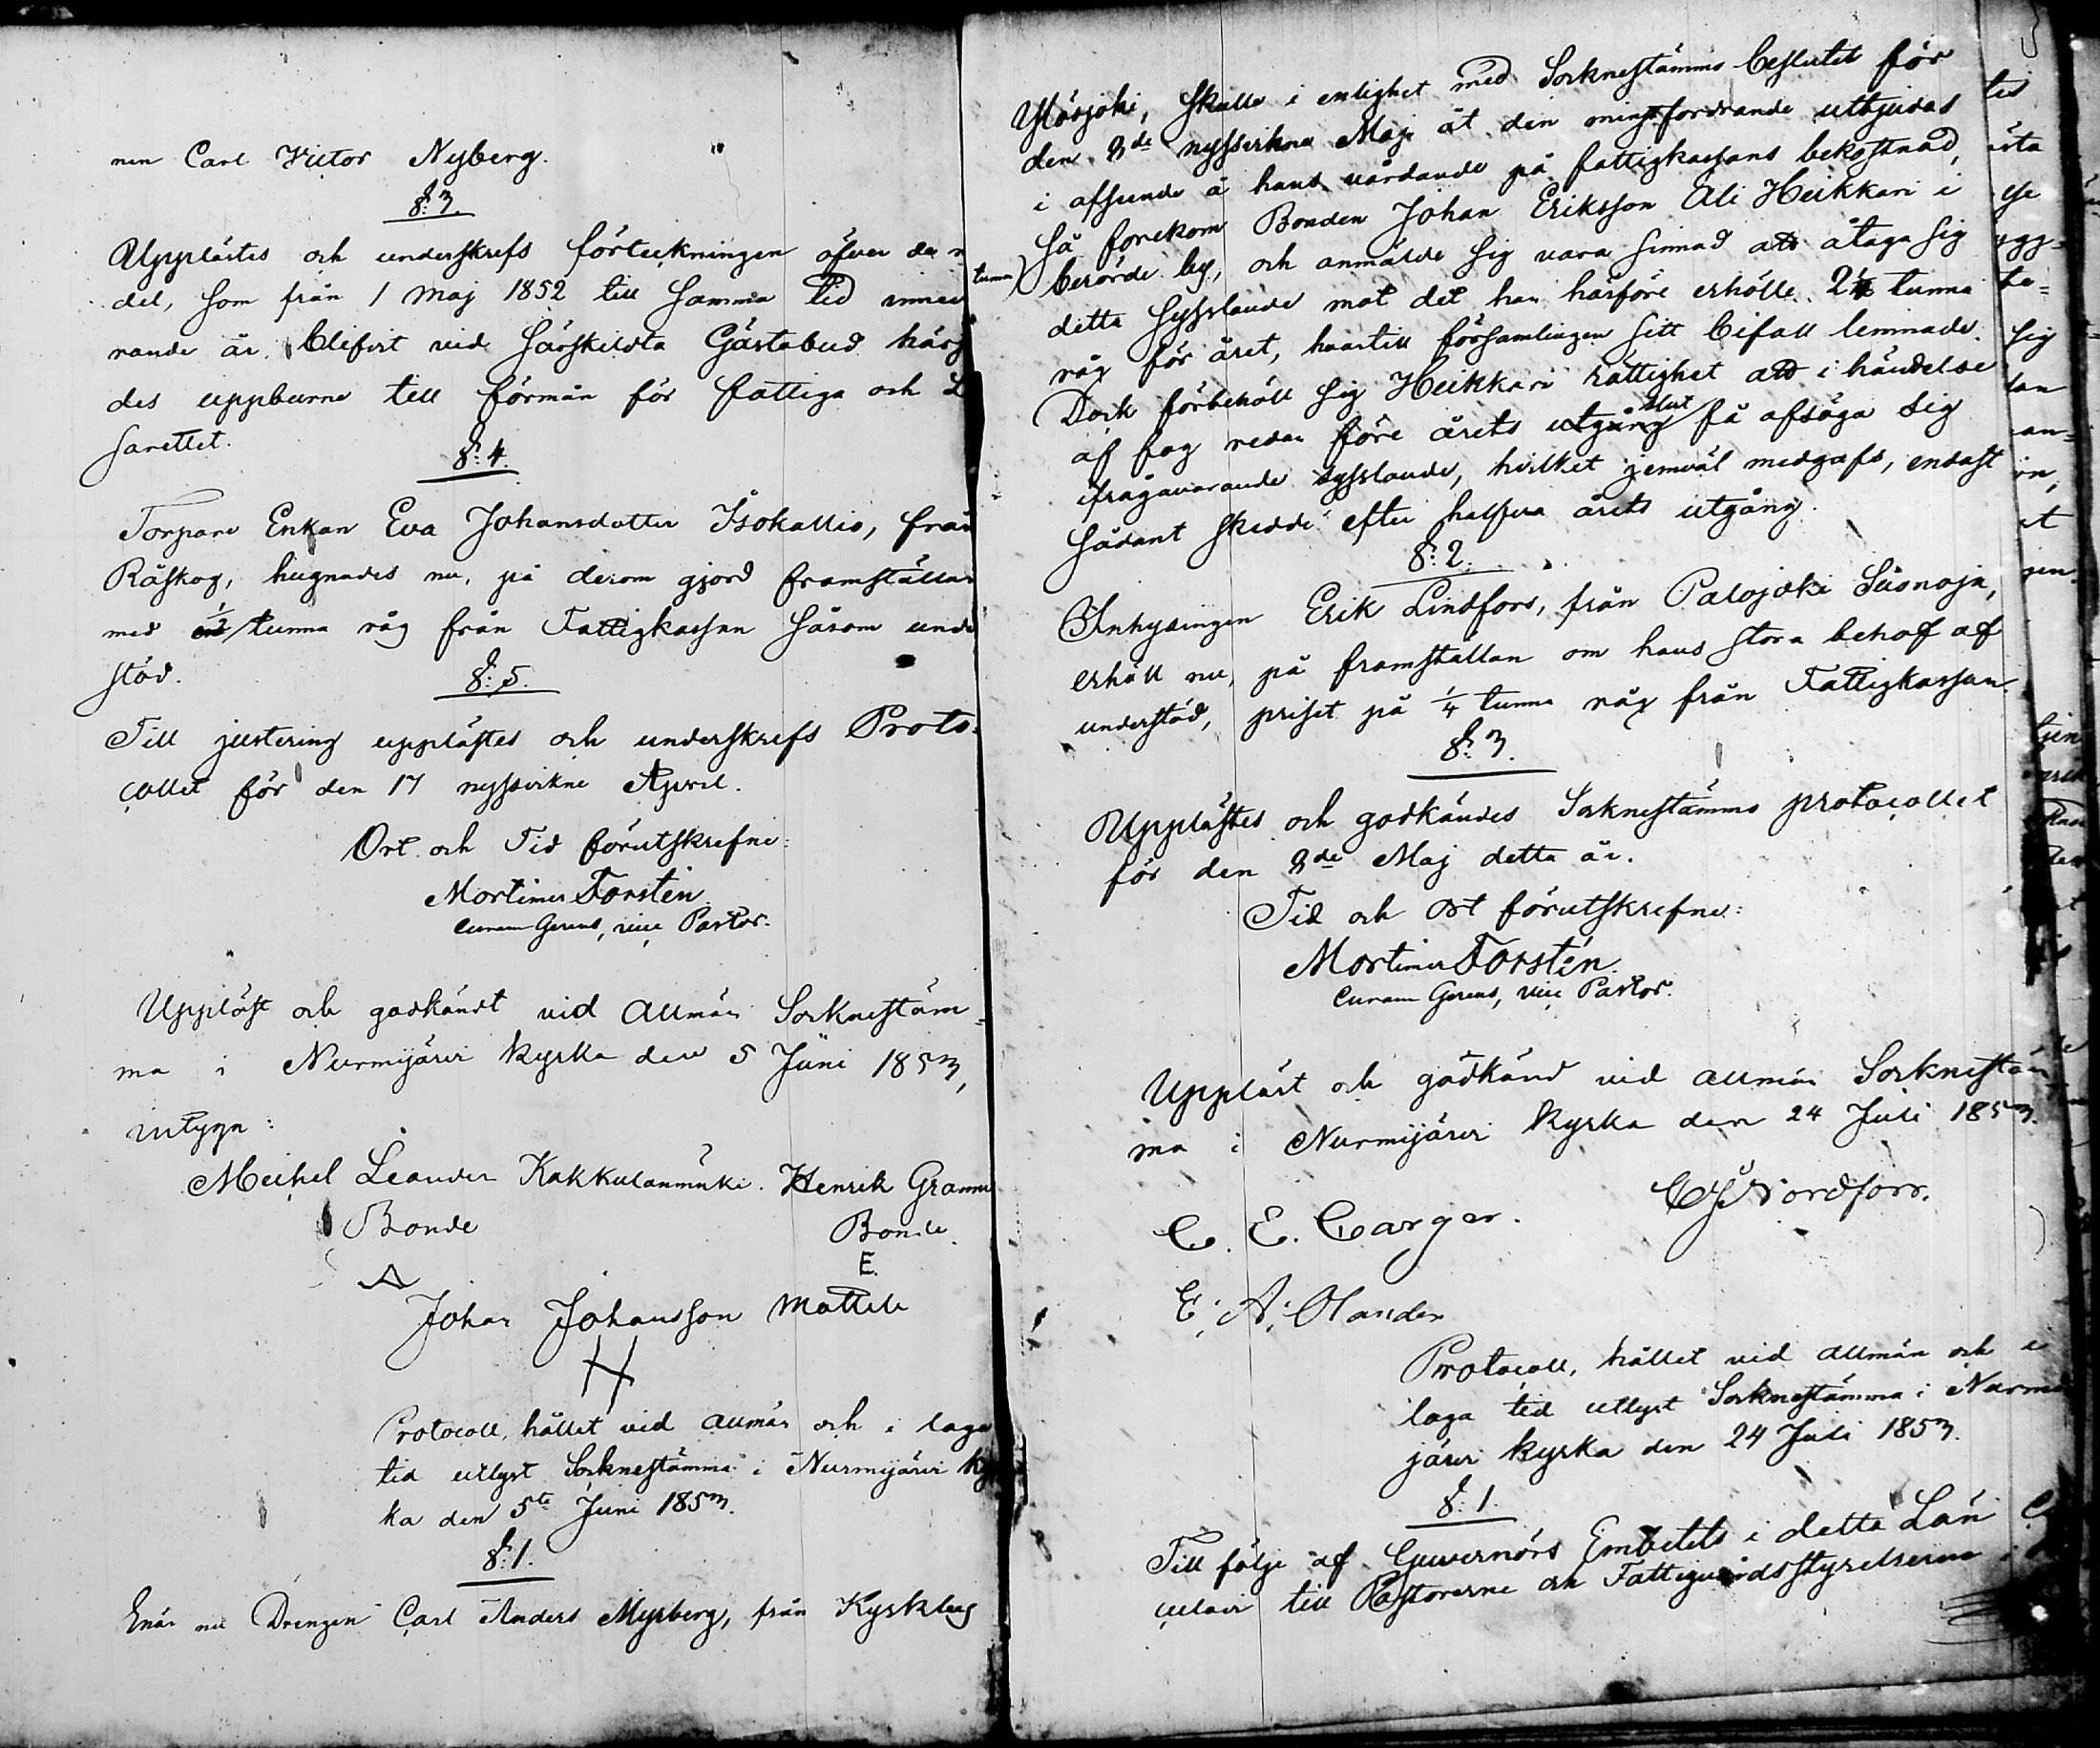 nen Carl Victor Nyberg.
§: 3.
Upplästes och underskrefs förteckningen öfver de m
del, som från 1 Maj 1852 till samma tid innev
rande år blifvit vid särskildta Gästabud härs
des uppburne till förmån för fattiga och L
sarettet.
§: 4.
Torpare Enkan Eva Johansdotter Isokallio, från
Råskog, hugnades nu, på derom gjord framställan
med 1/2 tunna råg från Fattigkassan såsom unde
stöd.
§: 5.
Till justering upplästes och underskrefs Proto=
collet för den 17 nyssvikne April.
Ort och Tid förutskrefne:
Mortimer Forstén
Curam Gerens, vice Pastor.
Uppläst och godkändt vid allmän Socknestäm=
ma i Nurmijärvi kyrka den 5 Juni 1853,
intyga:
Michel Leander Kakkulanmäki. Henrik Grann
Bonde Bonde
E.
Johan Johansson Mattila
Protocoll, hållet vid allmän och i laga
tid utlyst Socknestämma i Nurmijärvi Ky
ka den 5te Juni 1853.
§: 1.
Enär nu Drengen Carl Anders Myrberg, från Kyrkbug
Ylösjoki, skulle i enlighet med Socknestämms beslutet för
den 8de nyssvikne Maj åt den minstfordrande utbjudas
i afseende å hans vårdande på fattigkassans bekostnad,
så förekom Bonden Johan Eriksson Ali Heikkari i
berörde by, och anmälde sig vara sinnad att åtaga sig
detta sysslande mot det han härföre erhölle 2 1/2 tunna
tunna
råg för året, hvartill församlingen sitt bifall lemnade.
Dock förbehöll sig Heikkari rättighet att i händelse
af fog redan före årets utgång slut få afsäga sig
ifrågavarande sysslande, hvilket jemväl medgafs, endast
sådant skedde efter halfva årets utgång.
§: 2.
Inhysingen Erik Lindfors, från Palojoki Suonoja,
erhöll nu, på framställan om hans stora behof af
understöd, priset på 1/4 tunna råg från Fattigkassan.
§: 3.
Upplästes och godkändes Socknestämms protocollet
för den 8de Maj detta år.
Tid och Ort förutskrefne:
Mortimer Forstén.
Curam Gerens, vice Pastor.
Uppläst och godkänd vid allmän Socknestäm
ma i Nurmijärvi Kyrka den 24 Juli 1853.
C. E. Carger. Nordfors.
E. A. Olander
Protocoll, hållet vid allmän och i
laga tid utlyst Socknestämma i Nurmi
järvi kyrka den 24 Juli 1853.
§: 1.
Till följe af Guvernörs Embetets i detta Län C
culair till Pastorerne och Fattigvårdsstyrelserne i